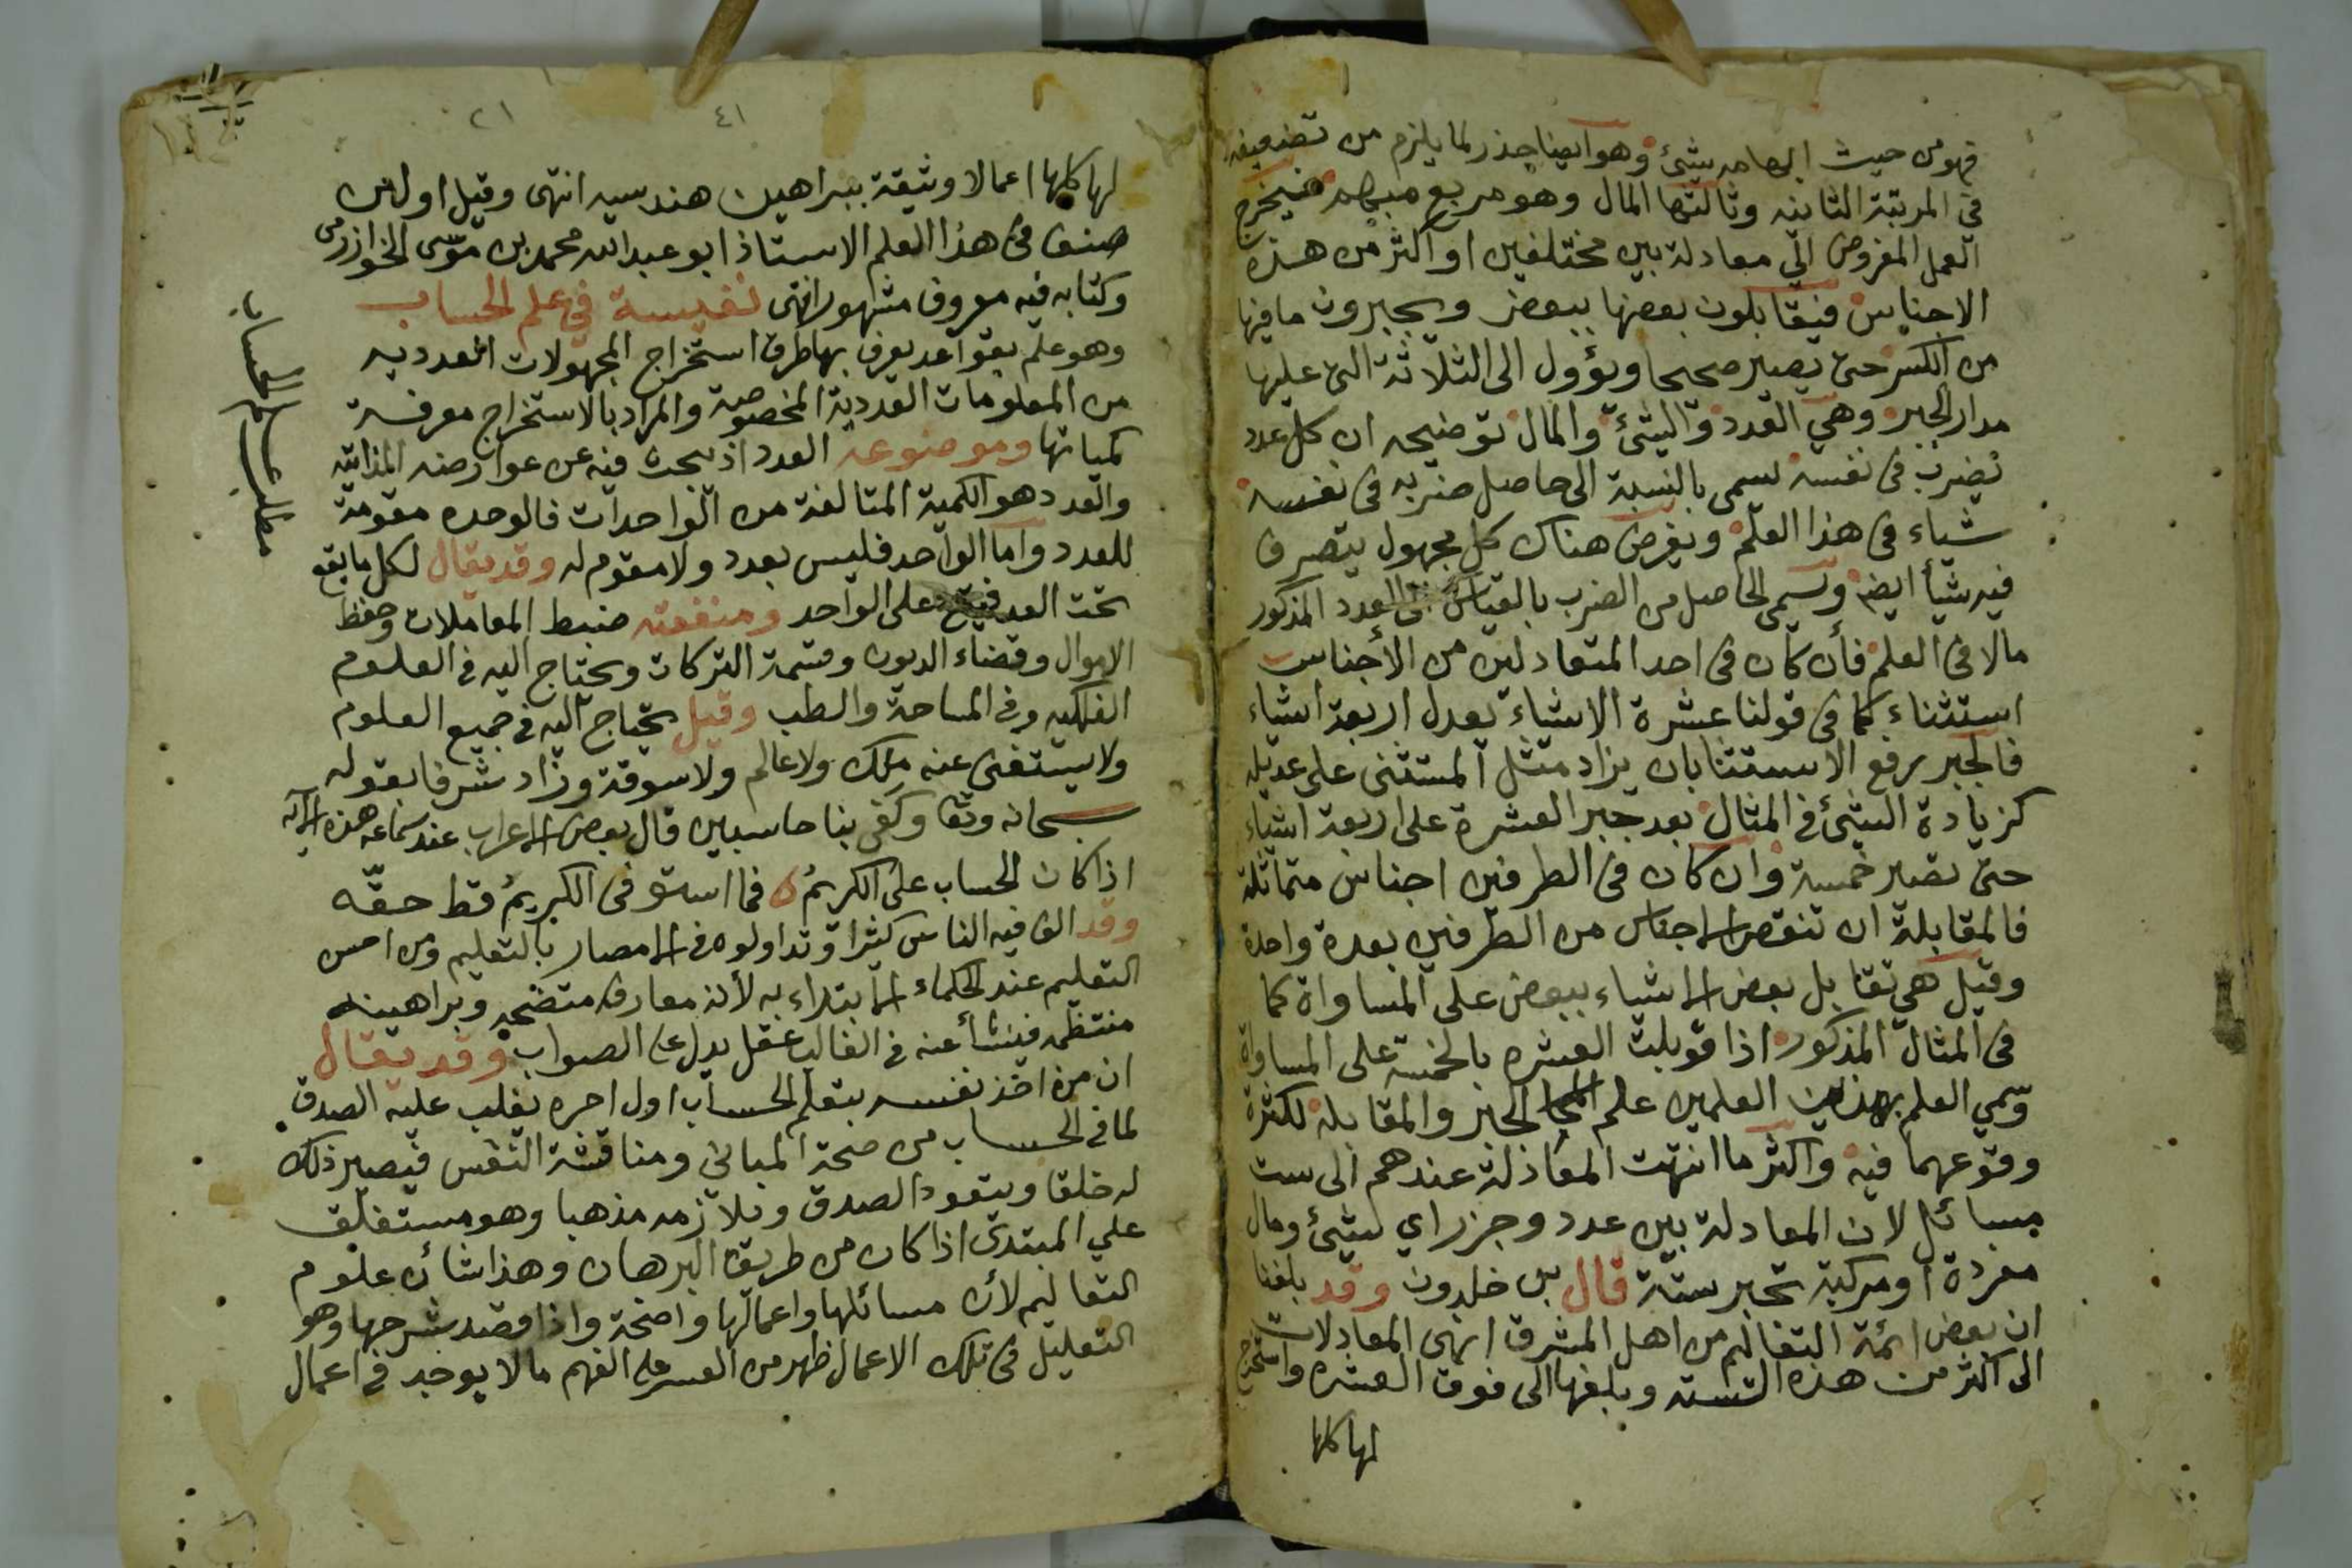 فهو من حيث ابهامه شئ وهو ايضا جذر لما يلزم من تضعيفه
في المرتبة الثانيه وثالثها المال وهو مربع مبهم فيخرج
العمل المفروض الي معادلة بين مختلفين او اكثر من هذه
الاجناس فيقابلون بعضها ببعض ويجبرون ما فيها
من الكسر حتى يصير صحيحا ويؤول الى الثلاثة التى عليها
مدار الجبر وهي العدد والشئ والمال توضيحه ان كل عدد
يضرب فى نفسه يسمى بالنسبة الى حاصل ضربه فى نفسه
شياء فى هذا العلم ويفرض هناك كل مجهول يتصرف
فيه شيأ ايضا ويسمى الحاصل من الضرب بالقياس العدد المذكور
مالا فى العلم فأن كان فى احد المتعادلين من الأجناس
استثناء كما فى قولنا عشرة الا شياء يعدل اربعة اشياء
فالجبر رفع الاستثنا بان يزاد مثل المستثنى على عديله
كزيادة الشئ فى المثال بعد جبر العشرة على اربعة اشياء
حتى تصير خمسة وان كان فى الطرفين اجناس متماثلة
فالمقابلة ان تنقص الاجناس من الطرفين بعدة واحدة
وقيل هى تقابل بعض الاشياء ببعض على المساواة كما
فى المثال المذكور اذا قوبلت العشره بالخمسة على المساواة
وسمي العلم بهذين العلمين علم الجبر والمقابله لكثرة
وقوعهما فيه واكثر ما انتهت المعادلة عندهم الى ست
مسائل لان المعادلة بين عدد وجزر اي شئ ومال
مفردة او مركبة تجبر ستة قال بن خلدون وقد بلغنا
ان بعض ائمة التعاليم من اهل المشرق انهى المعادلات
الى اكثر من هذه الستة وبلغها الى فوق العشره واستخرج
لها كلها
٤١
٢١
لها كلها اعمالا وثيقة ببراهين هندسيه انتهى وقيل اول من
صنف فى هذا العلم الاستاذ ابو عبد الله محمد بن موسى الخوازرمى
وكتابه فيه معروف مشهور انتهى نفيسة في علم الحساب
وهو علم بقواعد يعرف بها طرق استخراج المجهولات العدديه
من المعلومات العددية المخصوصة والمراد بالاستخراج معرفة
كمياتها وموضوعه العدد اذ يبحث فيه عن عوارضه الذاتيه
والعدد هو الكمية المتالفة من الواحدات فالوحده مقومة
للعدد واما الواحد فليس بعدد ولا مقوم له وقد يقال لكل ما يقع
تحت العد فيقع على الواحد ومنفعته ضبط المعاملات وحفظ
الاموال وقضاء الديون وقسمة التركات ويحتاج اليه فى العلوم
الفلكيه وفى المساحة والطب وقيل يحتاج اليه فى جميع العلوم
ولا يستغنى عنه ملك ولا عالم ولا سوقة وزاد شرفا بقوله
سبحانه وتعا وكفى بنا حاسبين قال بعض الاعراب عند سماعه هذه الآيه
اذا كان الحساب على الكريم فما استوفى الكريم قط حقّه
وقد الف فيه الناس كثيرا وتداولوه فى الامصار بالتعليم ومن احسن
التعليم عند الحكماء الابتداء به لأنه معارف متضحه وبراهينه
منتظمه فينشأ عنه فى الغالب عقل يدل على الصواب وقد يقال
ان من اخذ نفسه بتعلم الحساب اول امره يغلب عليه الصدق
لما فى الحساب من صحة المبانى ومناقشة النفس فيصير ذلك
له خلقا ويتعود الصدق ويلازمه مذهبا وهو مستغلق
علي المبتدى اذا كان من طريقه البرهان وهذا شأن علوم
التعاليم لأن مسائلها واعمالها واضحة واذا قصد شرحها وهو
التعليل فى تلك الاعمال ظهر من العسر على الفهم ما لا يوجد فى اعمال
مطلب علم الحساب